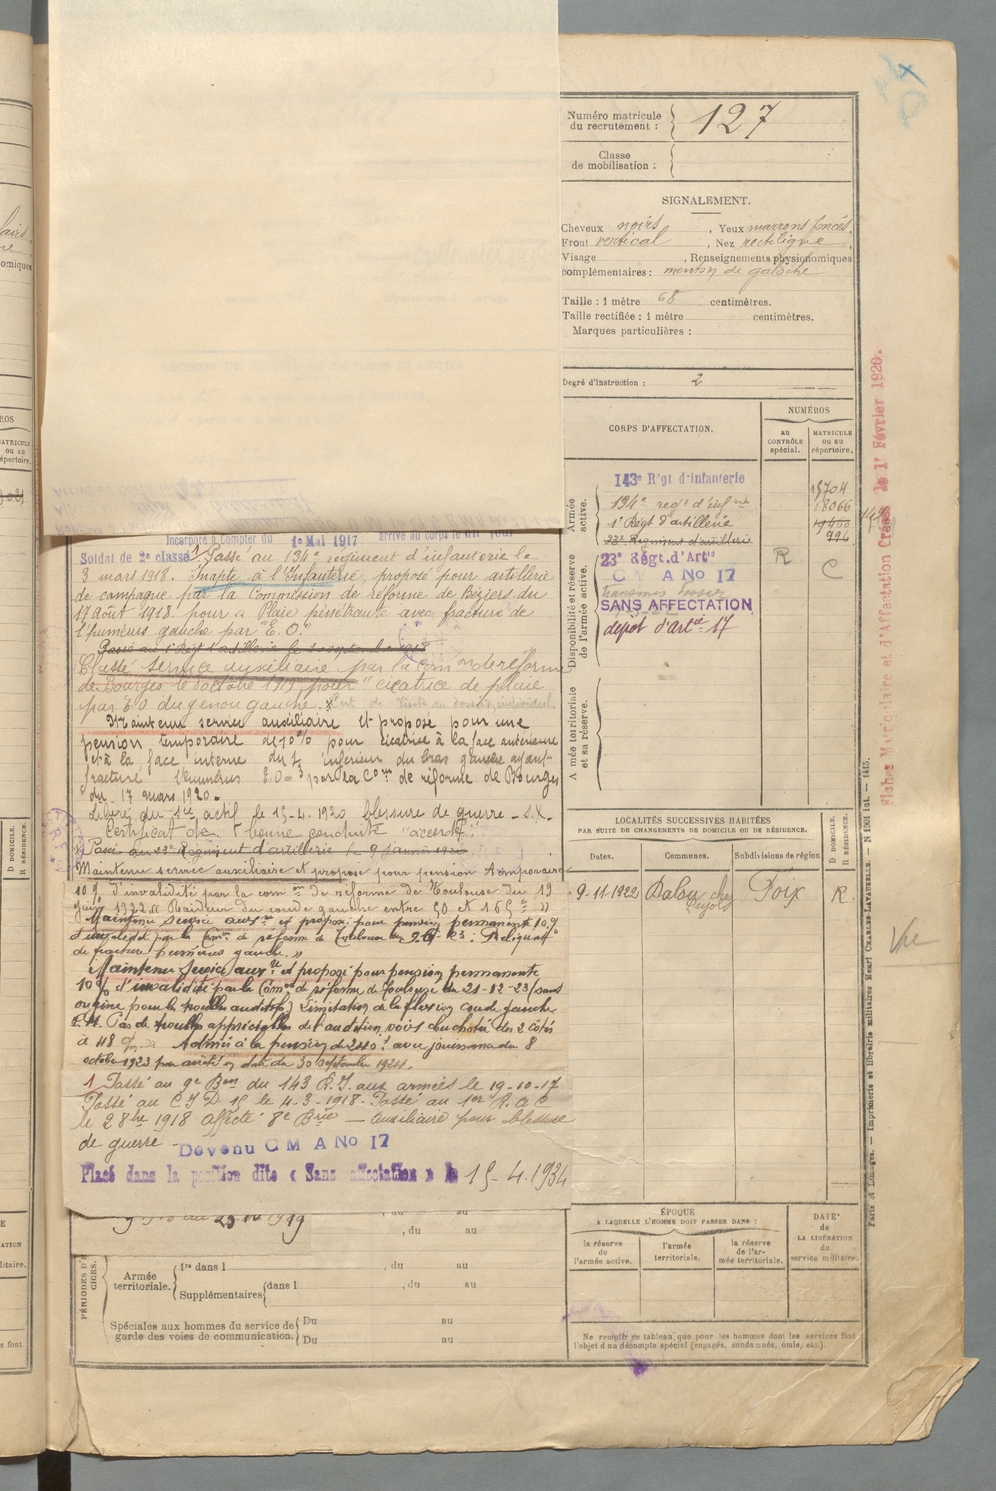 Numéro matricule
du recrutement :
127
Classe
de mobilisation :
SIGNALEMENT.
Cheveux noirs , Yeux marrons foncés,
Front vertical , Nez rectiligne ,
Visage , Renseignements physionomiques
complémentaires : menton de galoche
Taille : 1 mètre 68 centimètres.
Taille rectifiée : 1 mètre centimètres.
Marques particulières :
Degré d'instruction : 2
CORPS D'AFFECTATION.
NUMÉROS
AU CONTRÔLE spécial.
MATRICULE OU AU répertoire.
Armée active.
143e Régt d'infanterie
134e regt d'infrie 18066
1er Régt d'artillerie
23e Régiment d'artillerie 994
Disponibilité et réserve de l'armée active.
23e Régt. d'Artie R C
C M A No 17
SANS AFFECTATION
dépôt d'Artie 17
Armée territoriale et sa réserve.
Fiches Matriculaire et d'Affectation Créées le 1r Février 1920.
Incorporé à compter du 1e Mai 1917 arrivé au corps le dit jour
Soldat de 2e classe Passé au 134e regiment d'infanterie le
3 mars 1918. Inapte à l'Infanterie, proposé pour artillerie
de campagne par la Commission de réforme de Béziers du
17 Août 1918 pour " Plaie pénétrante avec fracture de
l'humérus gauche par "E.O."
Classé Service auxiliaire par la Com on de réforme
de Bourges le 8 octobre 1919 pour "cicatrice de plaie
par E.O du genou gauche.
Maintenu service auxiliaire et proposé pour une
pension temporaire de 10% pour cicatrice à la face antérieure
et à la face interne du 1/3 inférieur du bras gauche ayant
fracturé l'humérus E.O par la Com de réforme de Bourges
du 17 mars 1920.
Libéré du sce actif le 15-4-1920 blessure de guerre - S.X.
Certificat de bonne conduite "accordé"
Passé au 23e Régiment d'artillerie le 9 Janvier 1920
Maintenu service auxiliaire et proposé pour pension temporaire
10% d'invalidité par la com on de réforme de Toulouse du 19
Juin 1922 " Raideur du coude gauche entre 50 et 165° "
Maintenu Service auxre et proposé pour pension permanente 10%
d'invalidité par la Com de réforme de Toulouse du
de fracture humérus gauche. "
Maintenu Service auxre et proposé pour pension permanente
10% d'invalidité par la Com on de réforme de Toulouse du 21-12-23 (sans
origine pour les troubles auditifs) Limitation de la flexion coude gauche
Pas de troubles appréciables de l'audition voix chuchotée des 2 côtés
Admis à la pension de 240 f avec jouissance du 8
octobre 1923 par arrêté en date du 30 septembre 1924.
1 Passé au 9e Bon du 143 R.I. aux armées le 19-10-17
Passé au C I D 15 le 4-3-1918. Passé au 1er R.A.C
le 2 8bre 1918 affecté 8e Brie - auxiliaire pour blessure
de guerre - Devenu C M A No 17
Placé dans la position dite « Sans affectation » le 15-4-1934
LOCALITÉS SUCCESSIVES HABITÉES
PAR SUITE DE CHANGEMENTS DE DOMICILE OU DE RÉSIDENCE.
D DOMICILE.
R RÉSIDENCE.
Dates. Communes. Subdivisions de région
9-11-1922 Dalou chez Foix R
Vu
23 1919
, du au
PÉRIODES D'
CICES.
Armée territoriale.
1re dans l , du au
Supplémentaires dans l , du au
Spéciales aux hommes du service de
garde des voies de communication.
Du au
Du au
ÉPOQUE
A LAQUELLE L'HOMME DOIT PASSER DANS :
la réserve de l'armée active.
l'armée territoriale.
la réserve de l'armée territoriale.
DATE
de
LA LIBÉRATION
du
service militaire.
Ne remplir ce tableau que pour les hommes dont les services font
l'objet d'un décompte spécial (engagés, condamnés, omis, etc.).
Paris et Limoges. — Imprimerie et librairie militaires Henri CHARLES-LAVAUZELLE. — N 1901 int. — 1415.